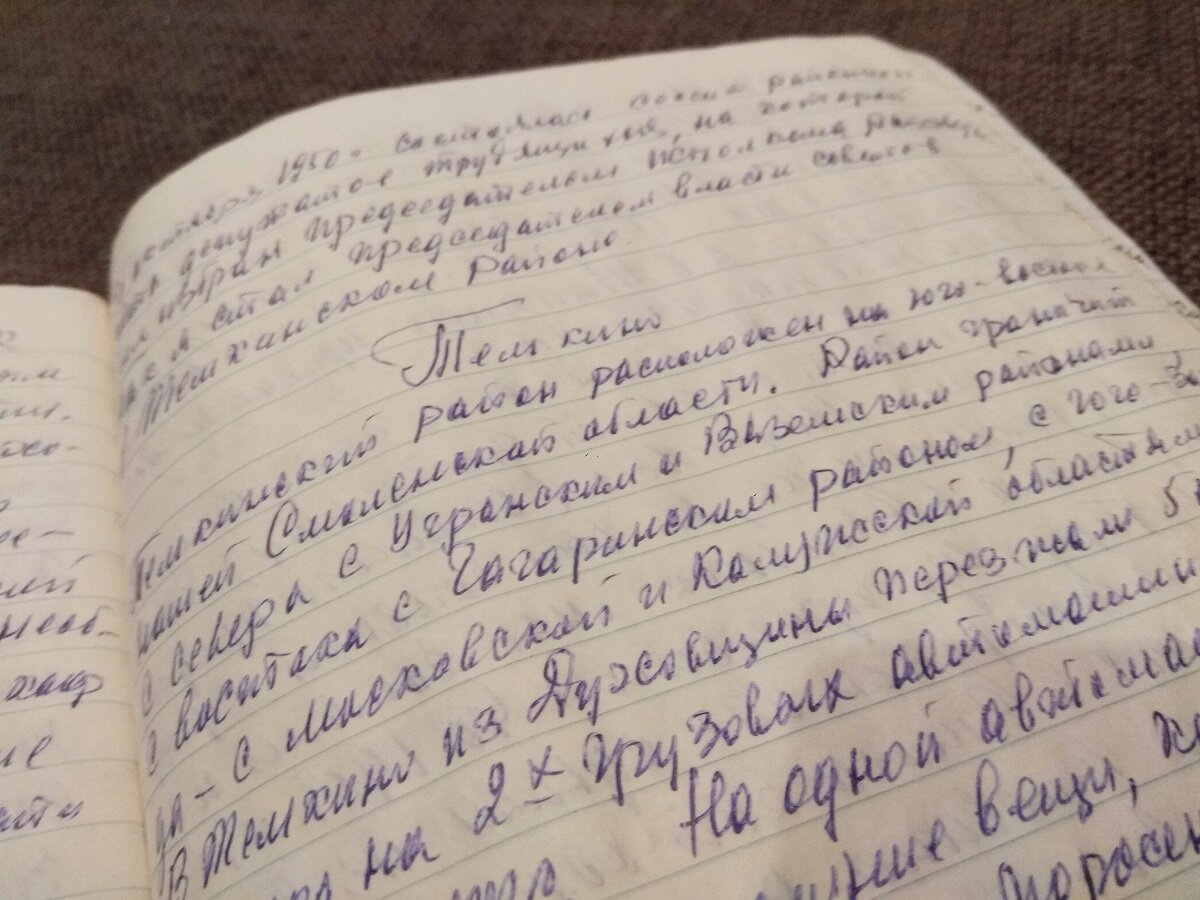 им
-
ей
необ-
хаар
ие
сти
октября 1950г. состоялась сессия районной
депутатов трудящихся, на которой
избран председателем исполкома
я стал председателем власти советов
Темкинском районе
Темкино
Темкинский район расположен на юго-восток
нашей Смоленской области. Район граничит
с севера с Угранским и Вяземским районами,
с востока с Гагаринским районом, с юго-за
да - с Московской и Калужской областями
В Темкино из Духовщины переезжали 5
на 2х грузовых автомашин
На одной автома
вещи,
поросен